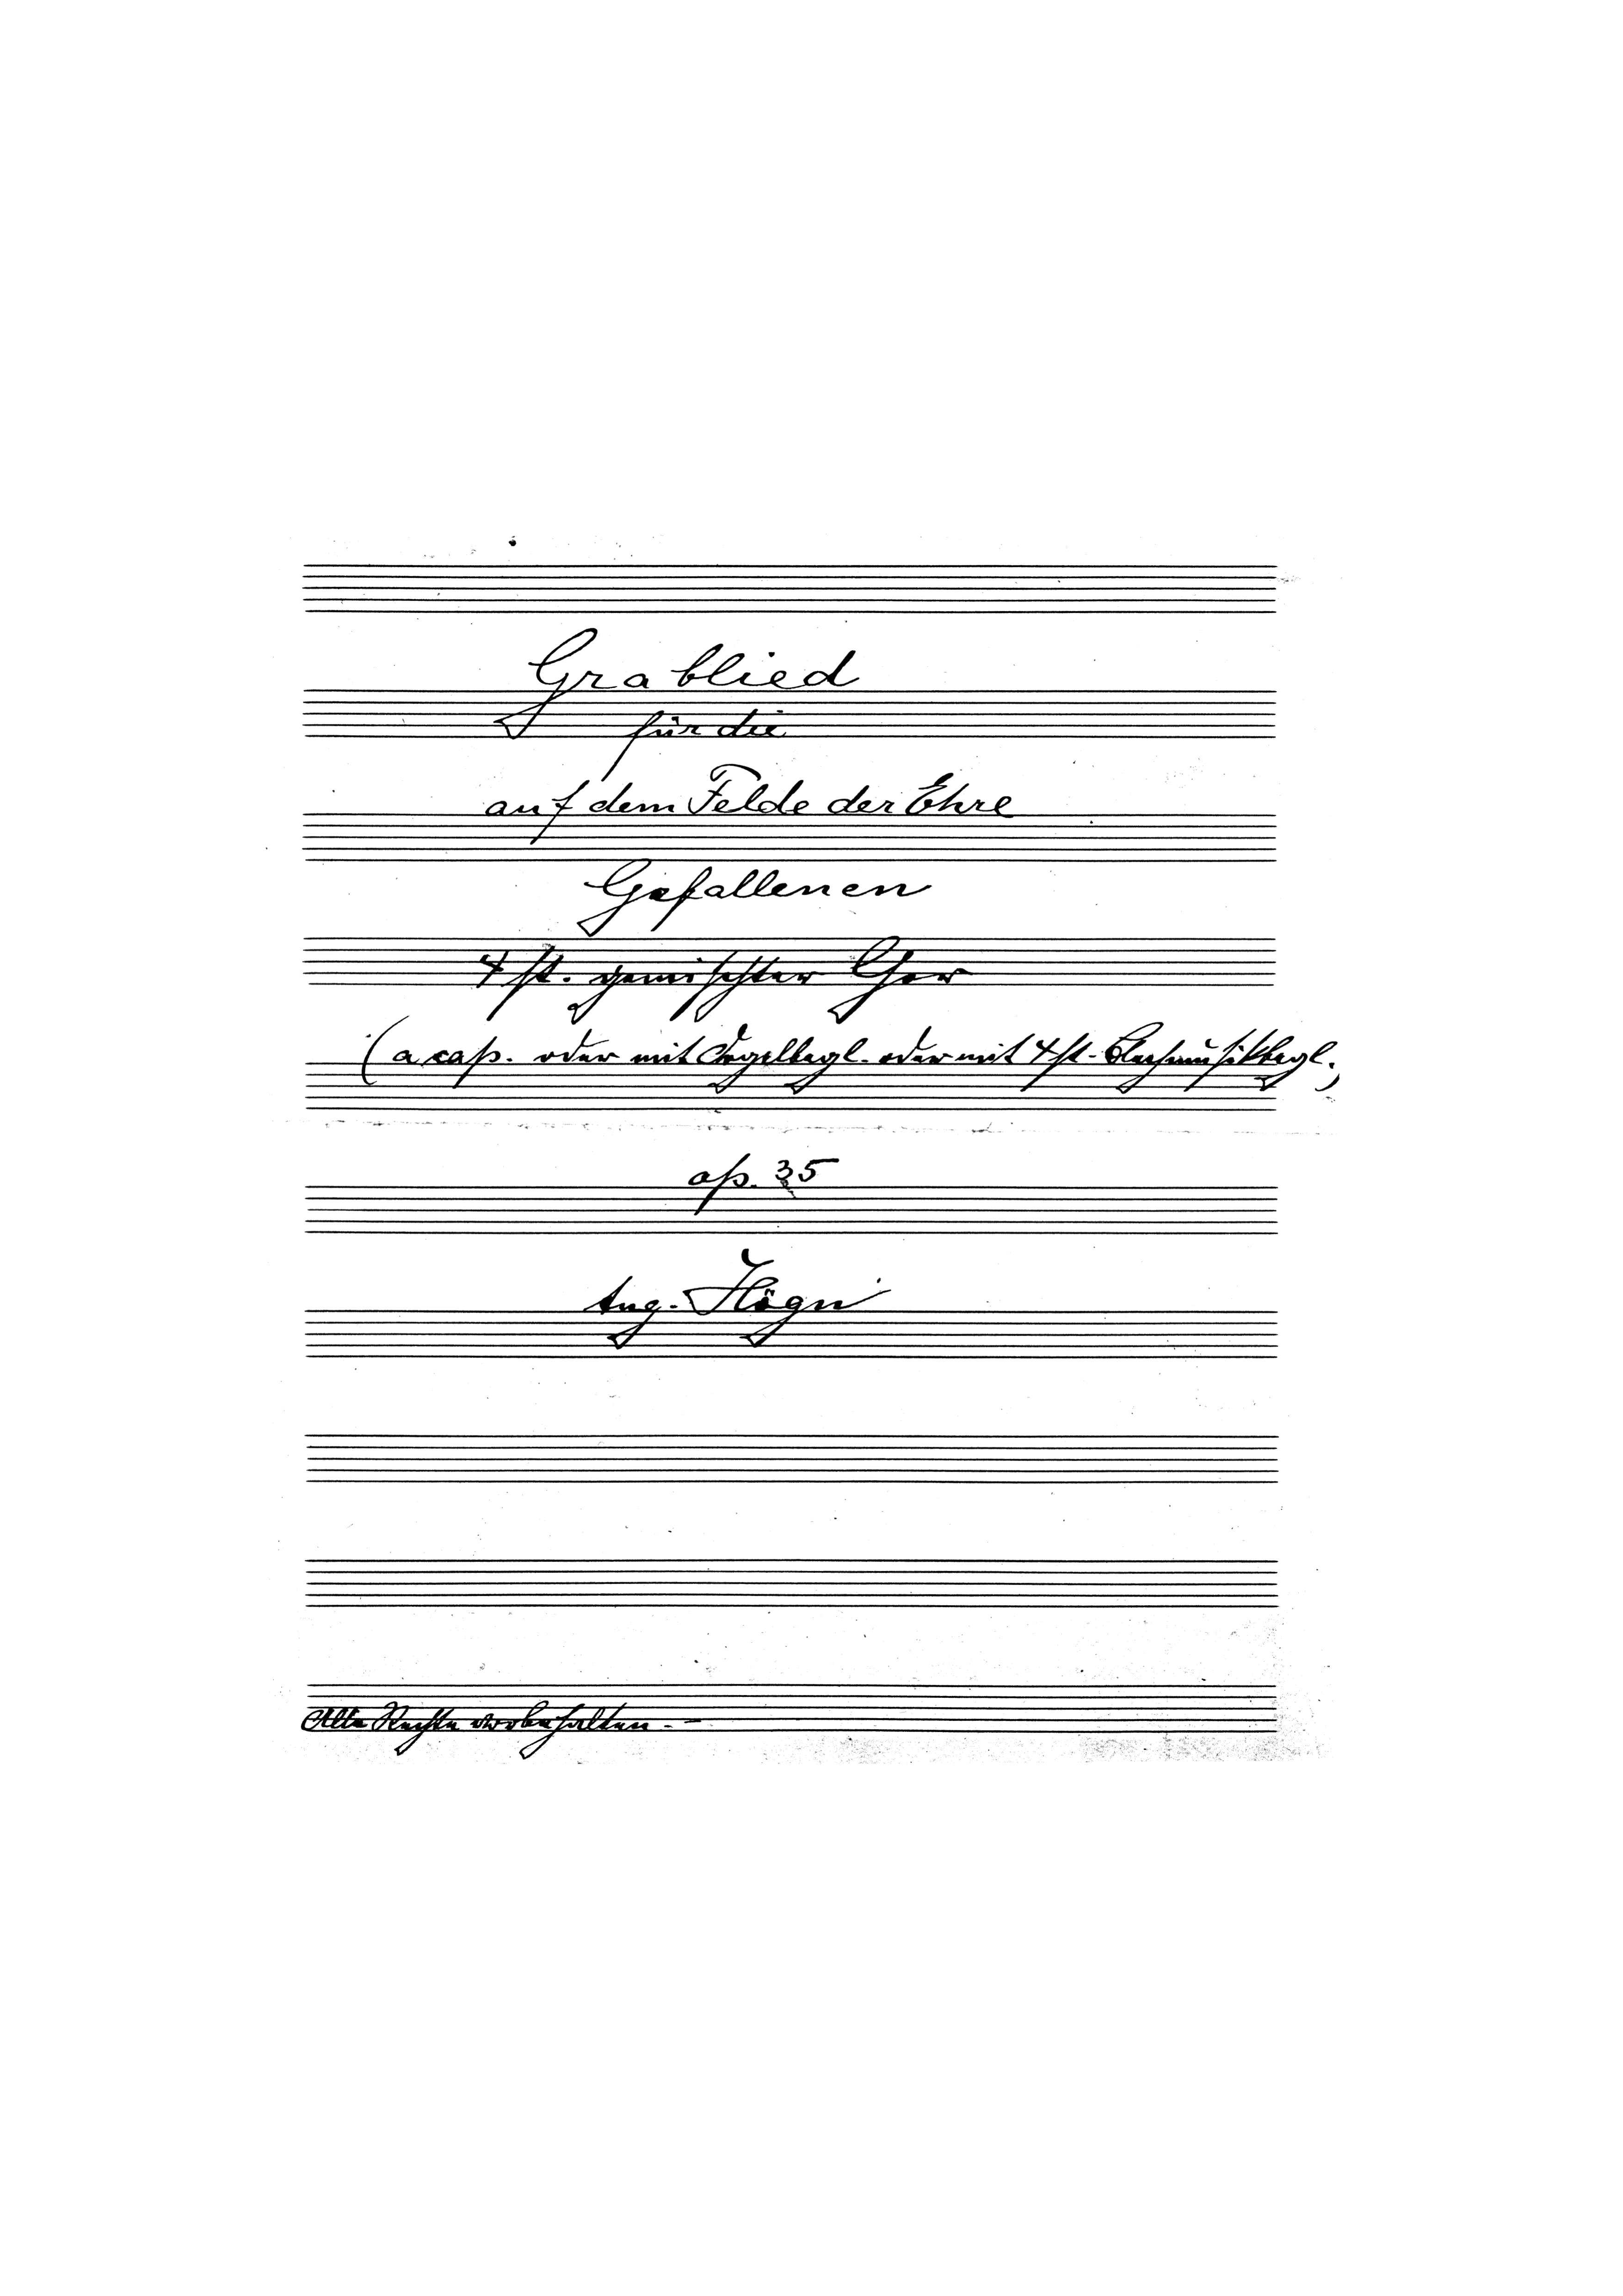 Grablied
für die
auf dem Felde der Ehre
Gefallenen
4 st. gemischter Chor
(a cap. oder mit Orgelbegl. oder mit 4 st. Blechmusikbegl.)
op. 35
Aug. Högn
Alle Rechte vorbehalten. -